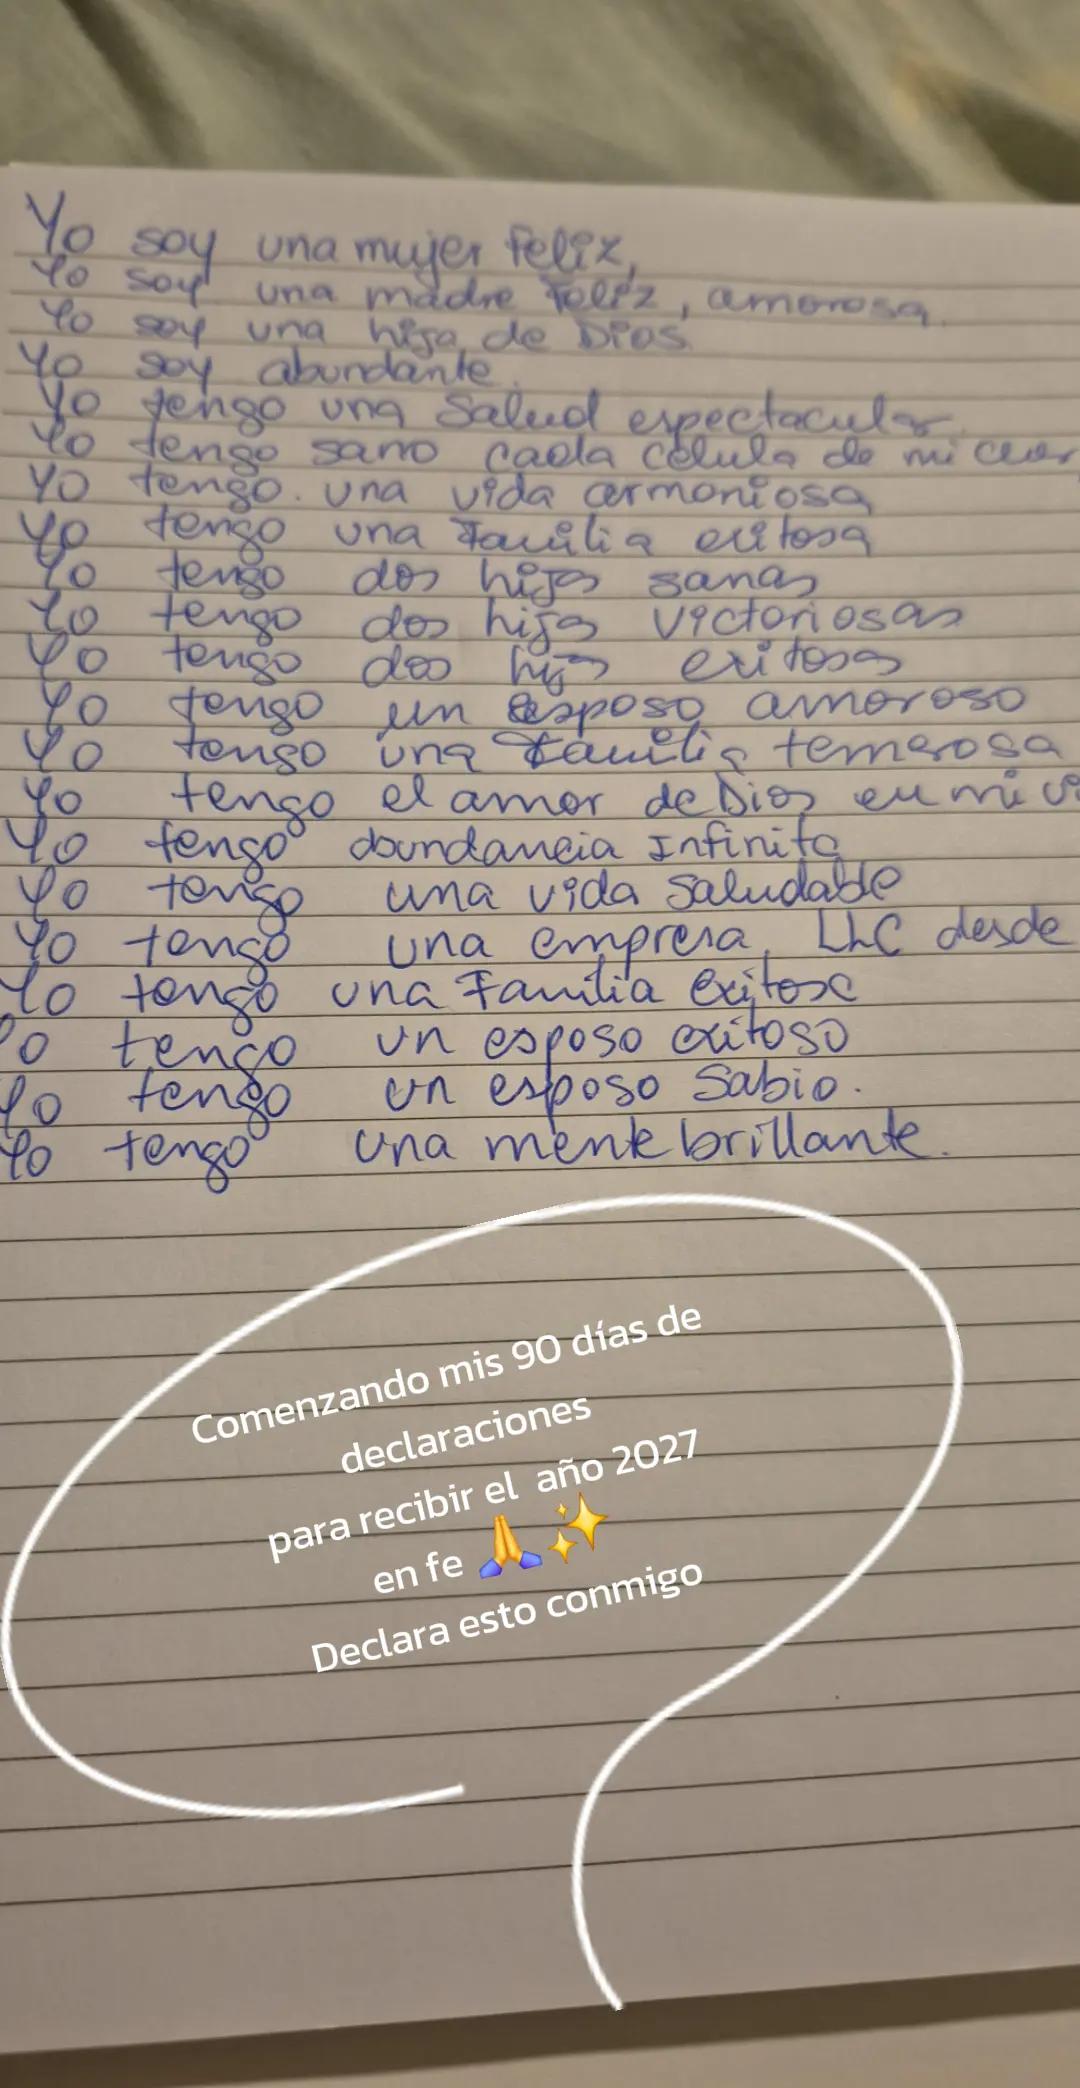 Yo soy una mujer feliz,
Yo soy una madre Feliz, amorosa.
Yo soy una hija de Dios
Yo soy abundante.
Yo tengo una Salud espectacular.
Yo tengo sano cada célula de mi
Yo tengo. una vida armoniosa
Yo tengo una Familia exitosa
Yo tengo dos hijas sanas
Yo tengo dos hijas victoriosas
Yo tengo dos hijas exitosas
Yo tengo un esposo amoroso
Yo tengo una Familia temerosa
Yo tengo el amor de Dios en mi
Yo tengo abundancia Infinita
Yo tengo una vida Saludable
Yo tengo una empresa, LLC desde
Yo tengo una Familia Exitosa
Yo tengo un esposo exitoso
Yo tengo un esposo Sabio.
Yo tengo una mente brillante.
Comenzando mis 90 días de
declaraciones
para recibir el año 2027
en fe 🙏✨
Declara esto conmigo